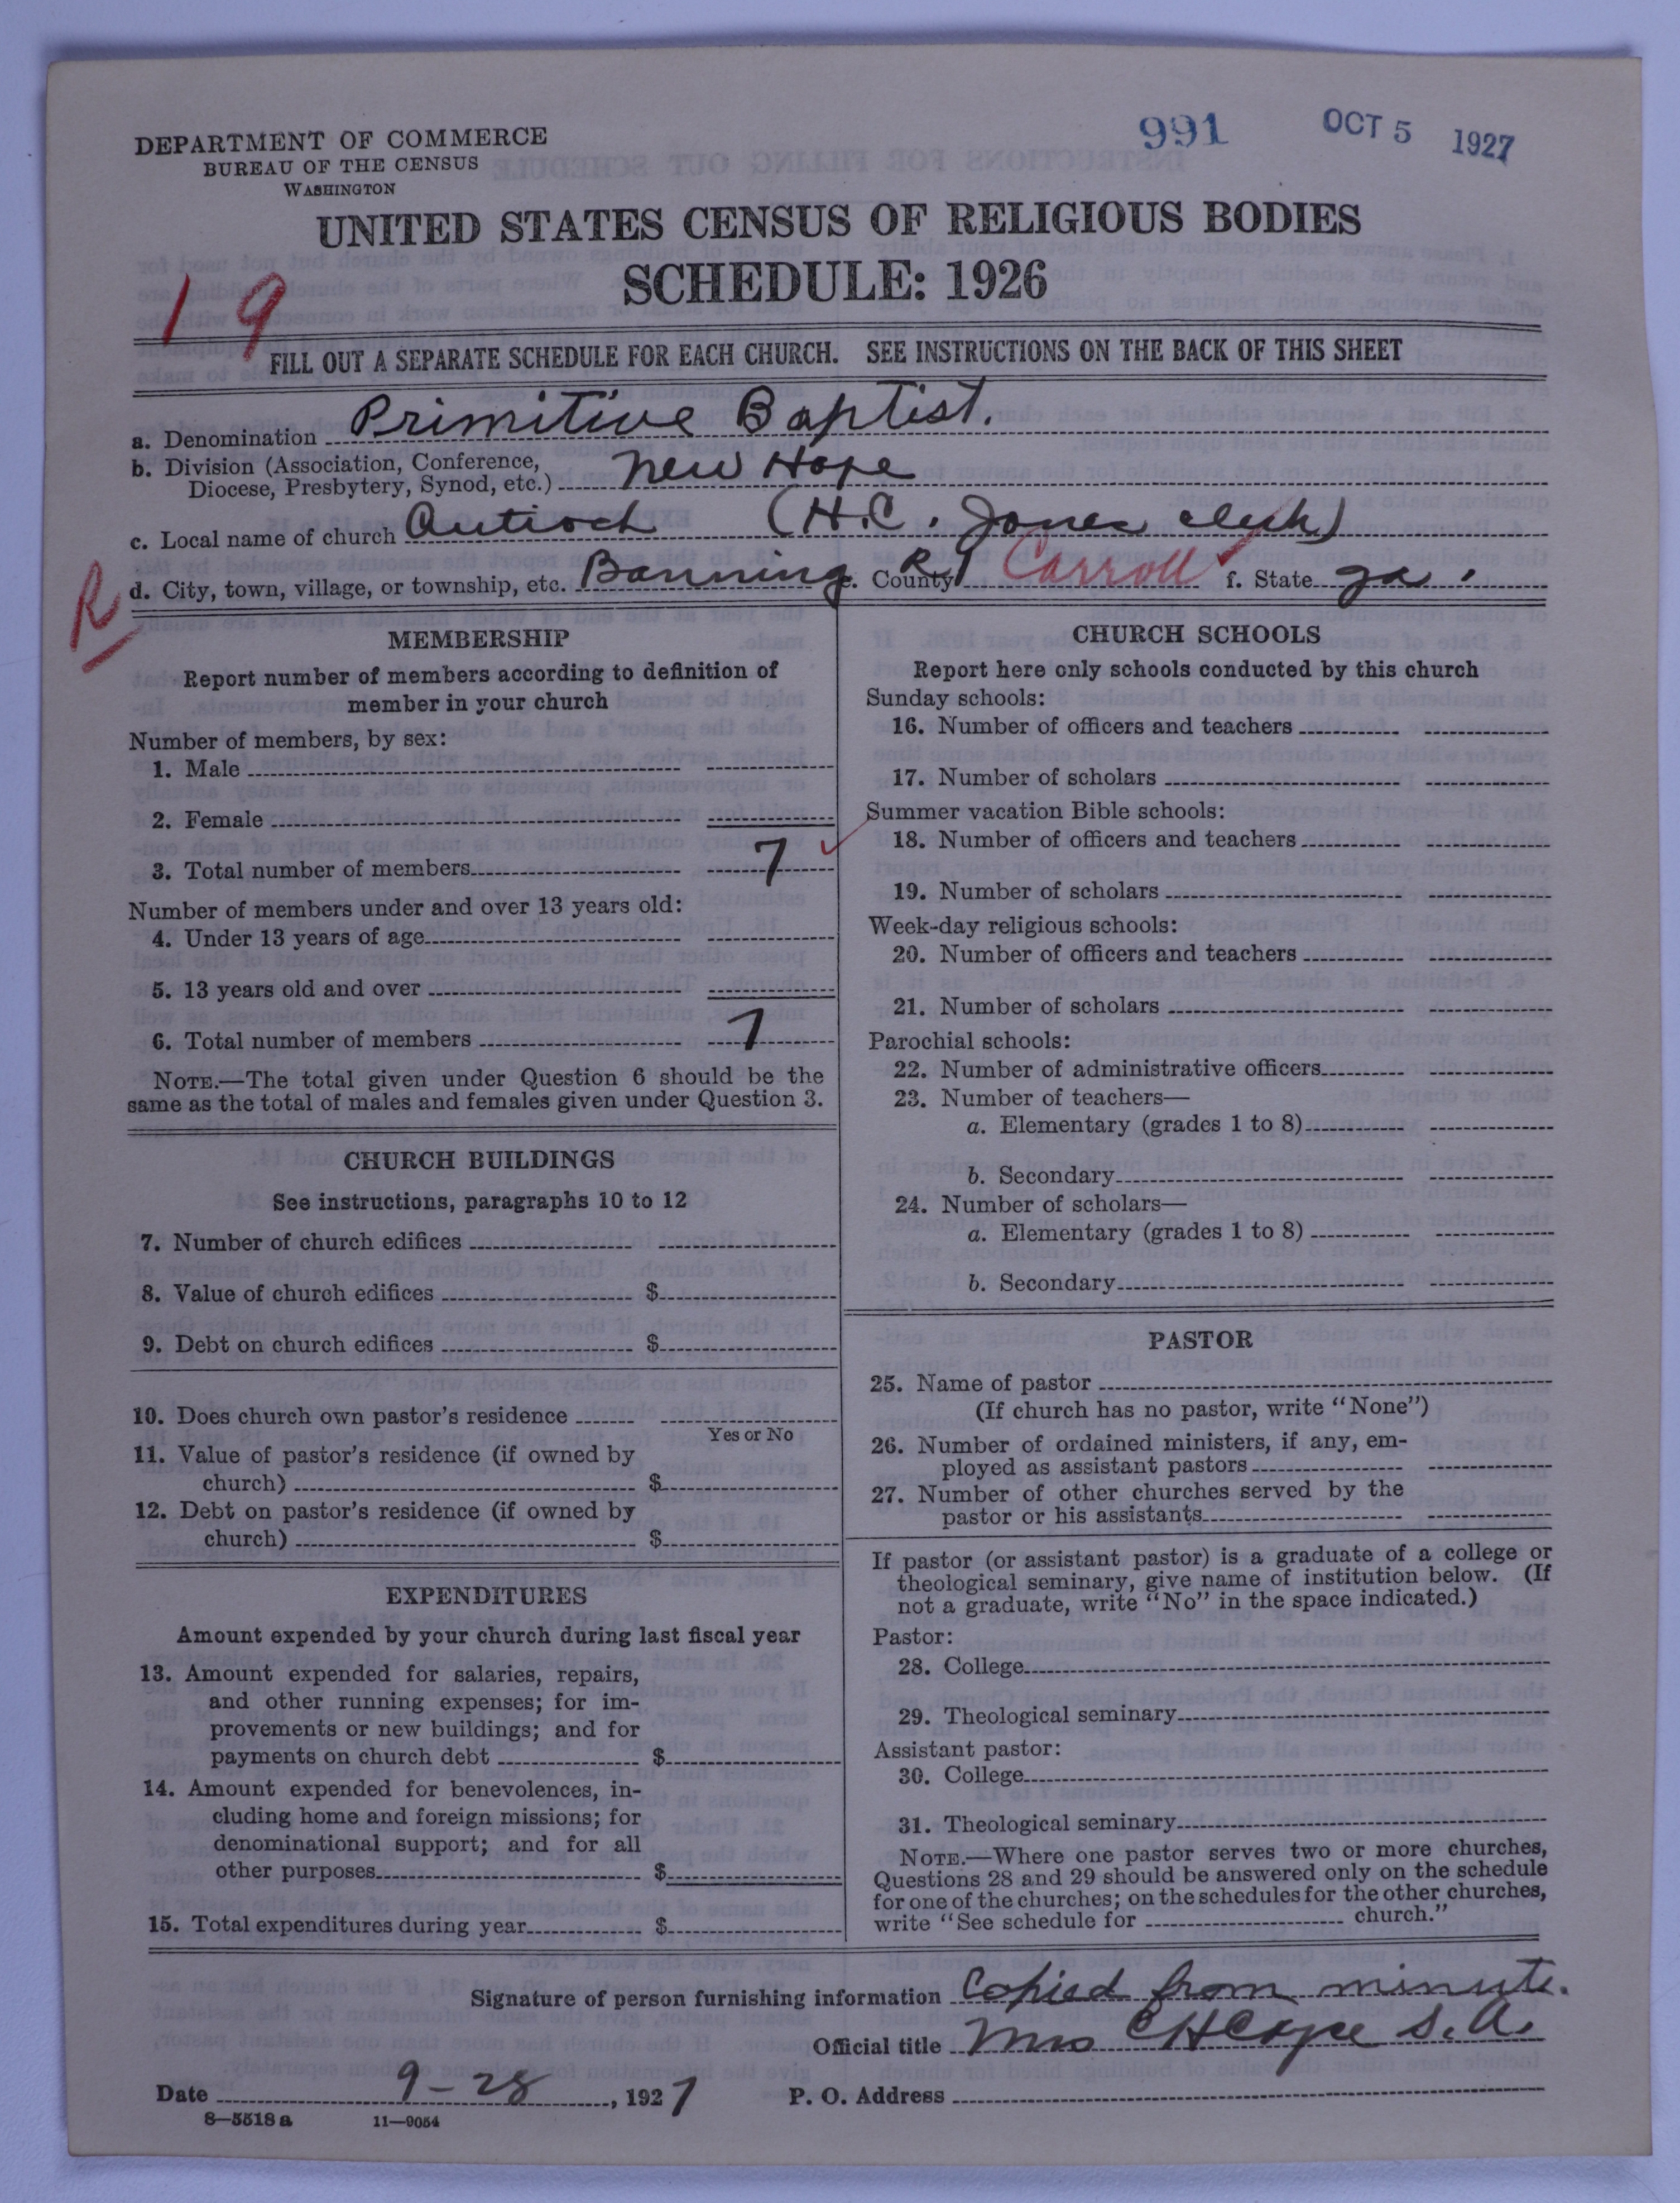 DEPARTMENT OF COMMERCE
BUREAU OF THE CENSUS
WASHINGTON
991 OCT 5 1927
UNITED STATES CENSUS OF RELIGIOUS BODIES
SCHEDULE: 1926
19
FILL OUT A SEPARATE SCHEDULE FOR EACH CHURCH. SEE INSTRUCTIONS ON THE BACK OF THIS SHEET
a. Denomination Primitive Baptist.
b. Division (Association, Conference,
Diocese, Presbytery, Synod, etc.) New Hope
c. Local name of church Antioch (H.C. Jones clerk)
R
d. City, town, village, or township, etc. Banning R1 e. County Carroll f. State Ga.
MEMBERSHIP
Report number of members according to definition of
member in your church
Number of members, by sex:
1. Male
2. Female
3. Total number of members 7
Number of members under and over 13 years old:
4. Under 13 years of age
5. 13 years old and over
6. Total number of members 7
NOTE.—The total given under Question 6 should be the
same as the total of males and females given under Question 3.
CHURCH BUILDINGS
See instructions, paragraphs 10 to 12
7. Number of church edifices
8. Value of church edifices $
9. Debt on church edifices $
10. Does church own pastor's residence
Yes or No
11. Value of pastor's residence (if owned by
church) $
12. Debt on pastor's residence (if owned by
church) $
EXPENDITURES
Amount expended by your church during last fiscal year
13. Amount expended for salaries, repairs,
and other running expenses; for im-
provements or new buildings; and for
payments on church debt $
14. Amount expended for benevolences, in-
cluding home and foreign missions; for
denominational support; and for all
other purposes $
15. Total expenditures during year $
CHURCH SCHOOLS
Report here only schools conducted by this church
Sunday schools:
16. Number of officers and teachers
17. Number of scholars
Summer vacation Bible schools:
18. Number of officers and teachers
19. Number of scholars
Week-day religious schools:
20. Number of officers and teachers
21. Number of scholars
Parochial schools:
22. Number of administrative officers
23. Number of teachers—
a. Elementary (grades 1 to 8)
b. Secondary
24. Number of scholars—
a. Elementary (grades 1 to 8)
b. Secondary
PASTOR
25. Name of pastor
(If church has no pastor, write "None")
26. Number of ordained ministers, if any, em-
ployed as assistant pastors
27. Number of other churches served by the
pastor or his assistants
If pastor (or assistant pastor) is a graduate of a college or
theological seminary, give name of institution below. (If
not a graduate, write "No" in the space indicated.)
Pastor:
28. College
29. Theological seminary
Assistant pastor:
30. College
31. Theological seminary
NOTE.—Where one pastor serves two or more churches,
Questions 28 and 29 should be answered only on the schedule
for one of the churches; on the schedules for the other churches,
write "See schedule for church."
Signature of person furnishing information Copied from minute.
Official title Mrs C H Cope S. A.
Date 9-28, 1927 P. O. Address
8—5518a 11—9054